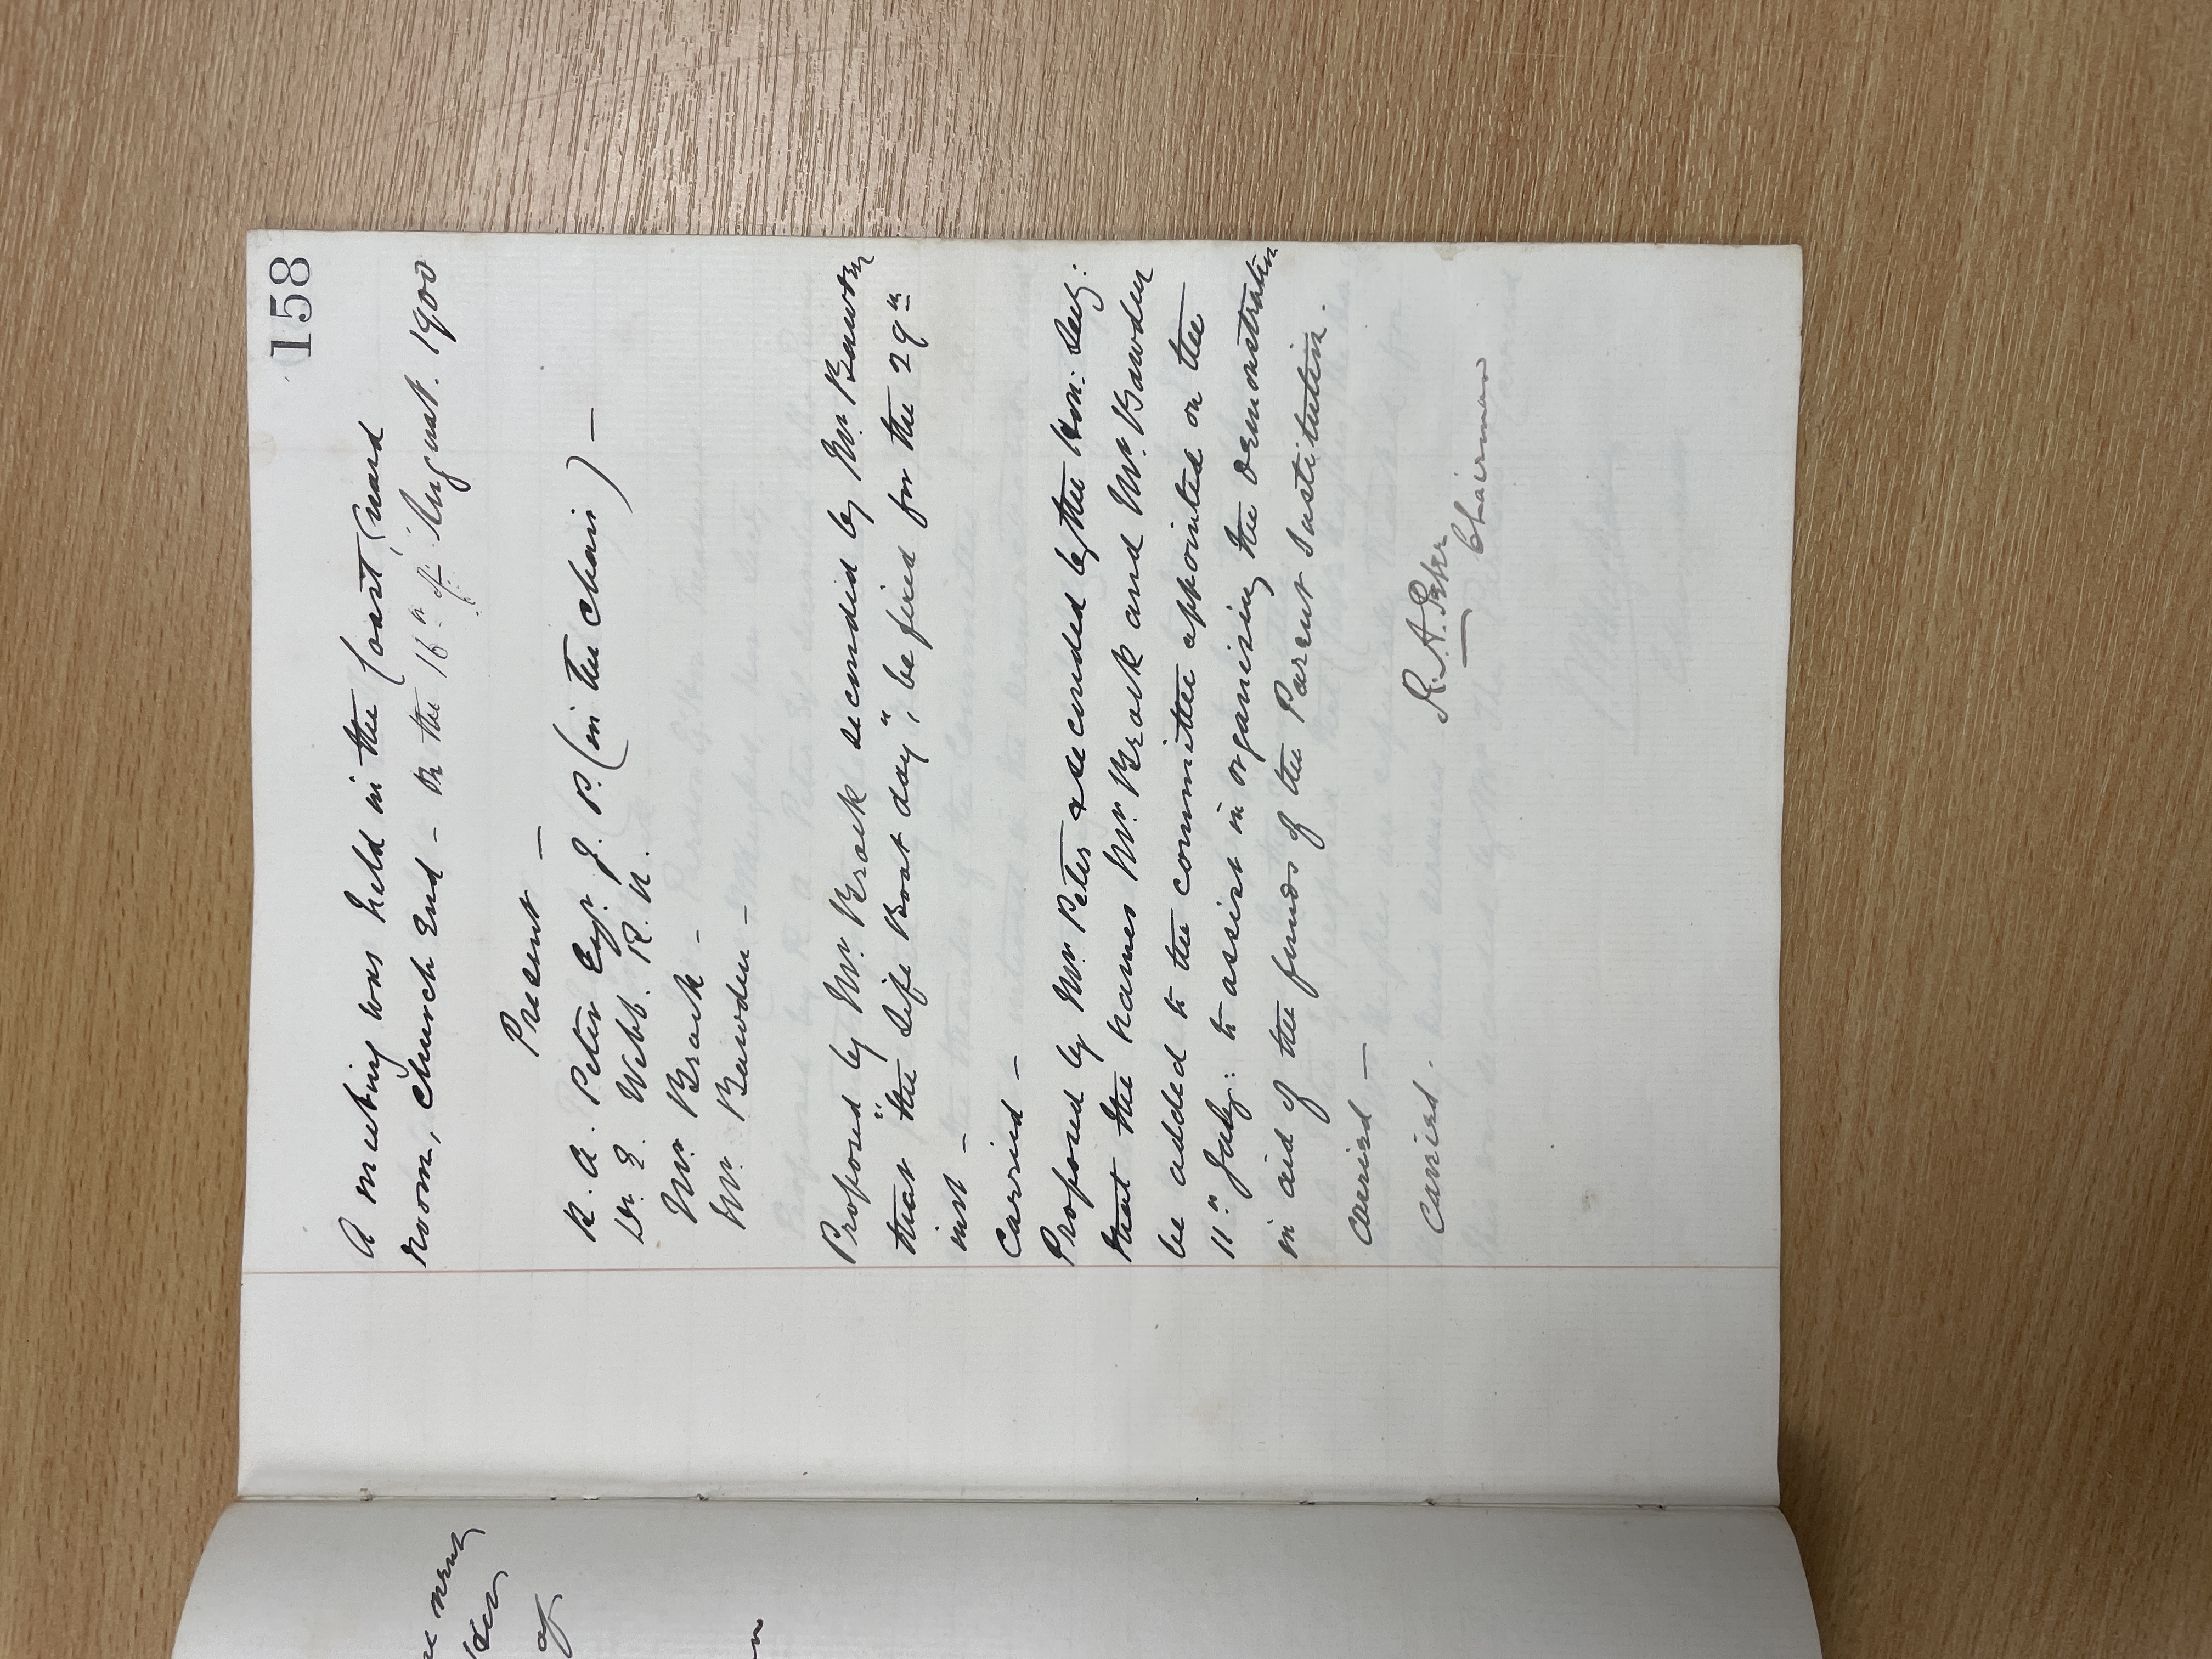 158
A meeting was held in the Coast Guard
Room, Church End – on the 16th of August. 1900
Present –
R. A. Peter Esqr. J. P. (in the chair) –
Dr. E. Webb. R. N.
Mr. Broak –
Mr. Bawden –
Proposed by Mr. Broak seconded by Mr. Bawden
that "the Life Boat day", be fixed for the 29th
inst –
Carried –
Proposed by Mr. Peter & seconded by the Hon: Secy:
that the names Mr. Broak and Mr. Bawden
be added to the committee appointed on the
11th July: to assist in organising the demonstration
in aid of the funds of the Parent Institution.
Carried –
Carried.
R. A. Peter
Chairman
of